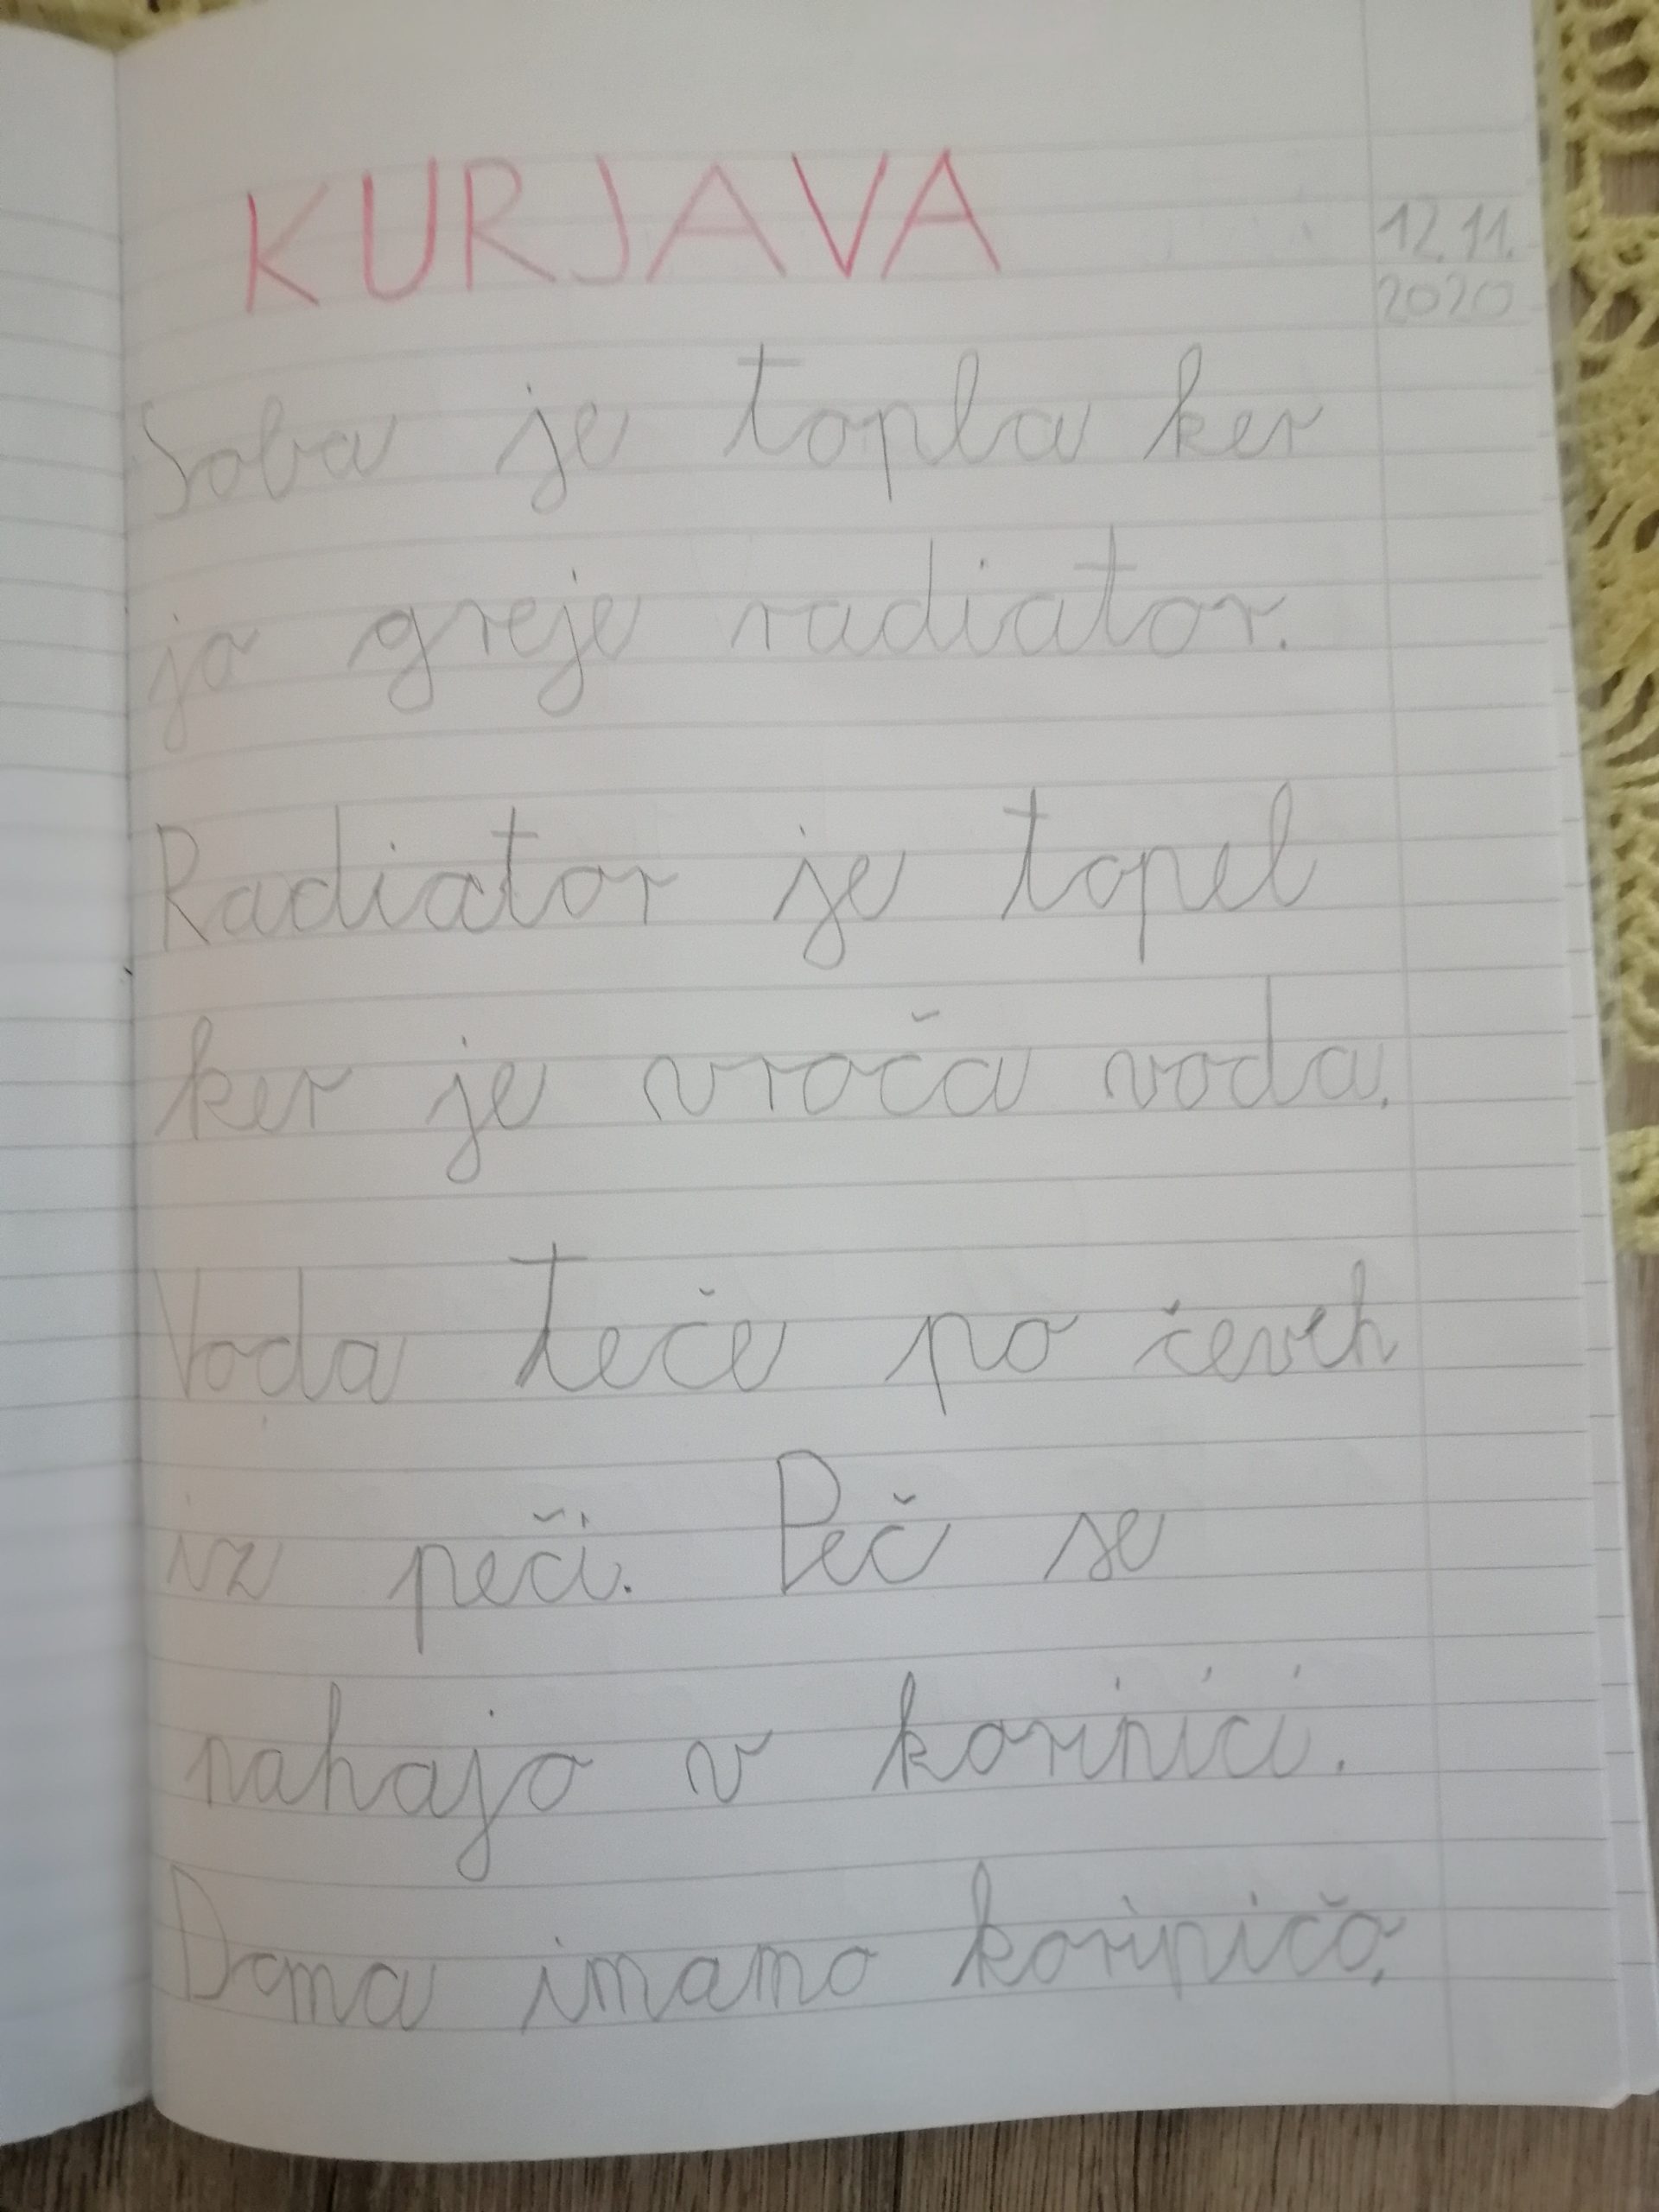 KURJAVA
12.11.
2020
Soba je topla ker
jo greje radiator.
Radiator je topel
ker je vroča voda.
Voda teče po ceveh
iz peči. Peč se
nahajo v korinici.
Doma imamo